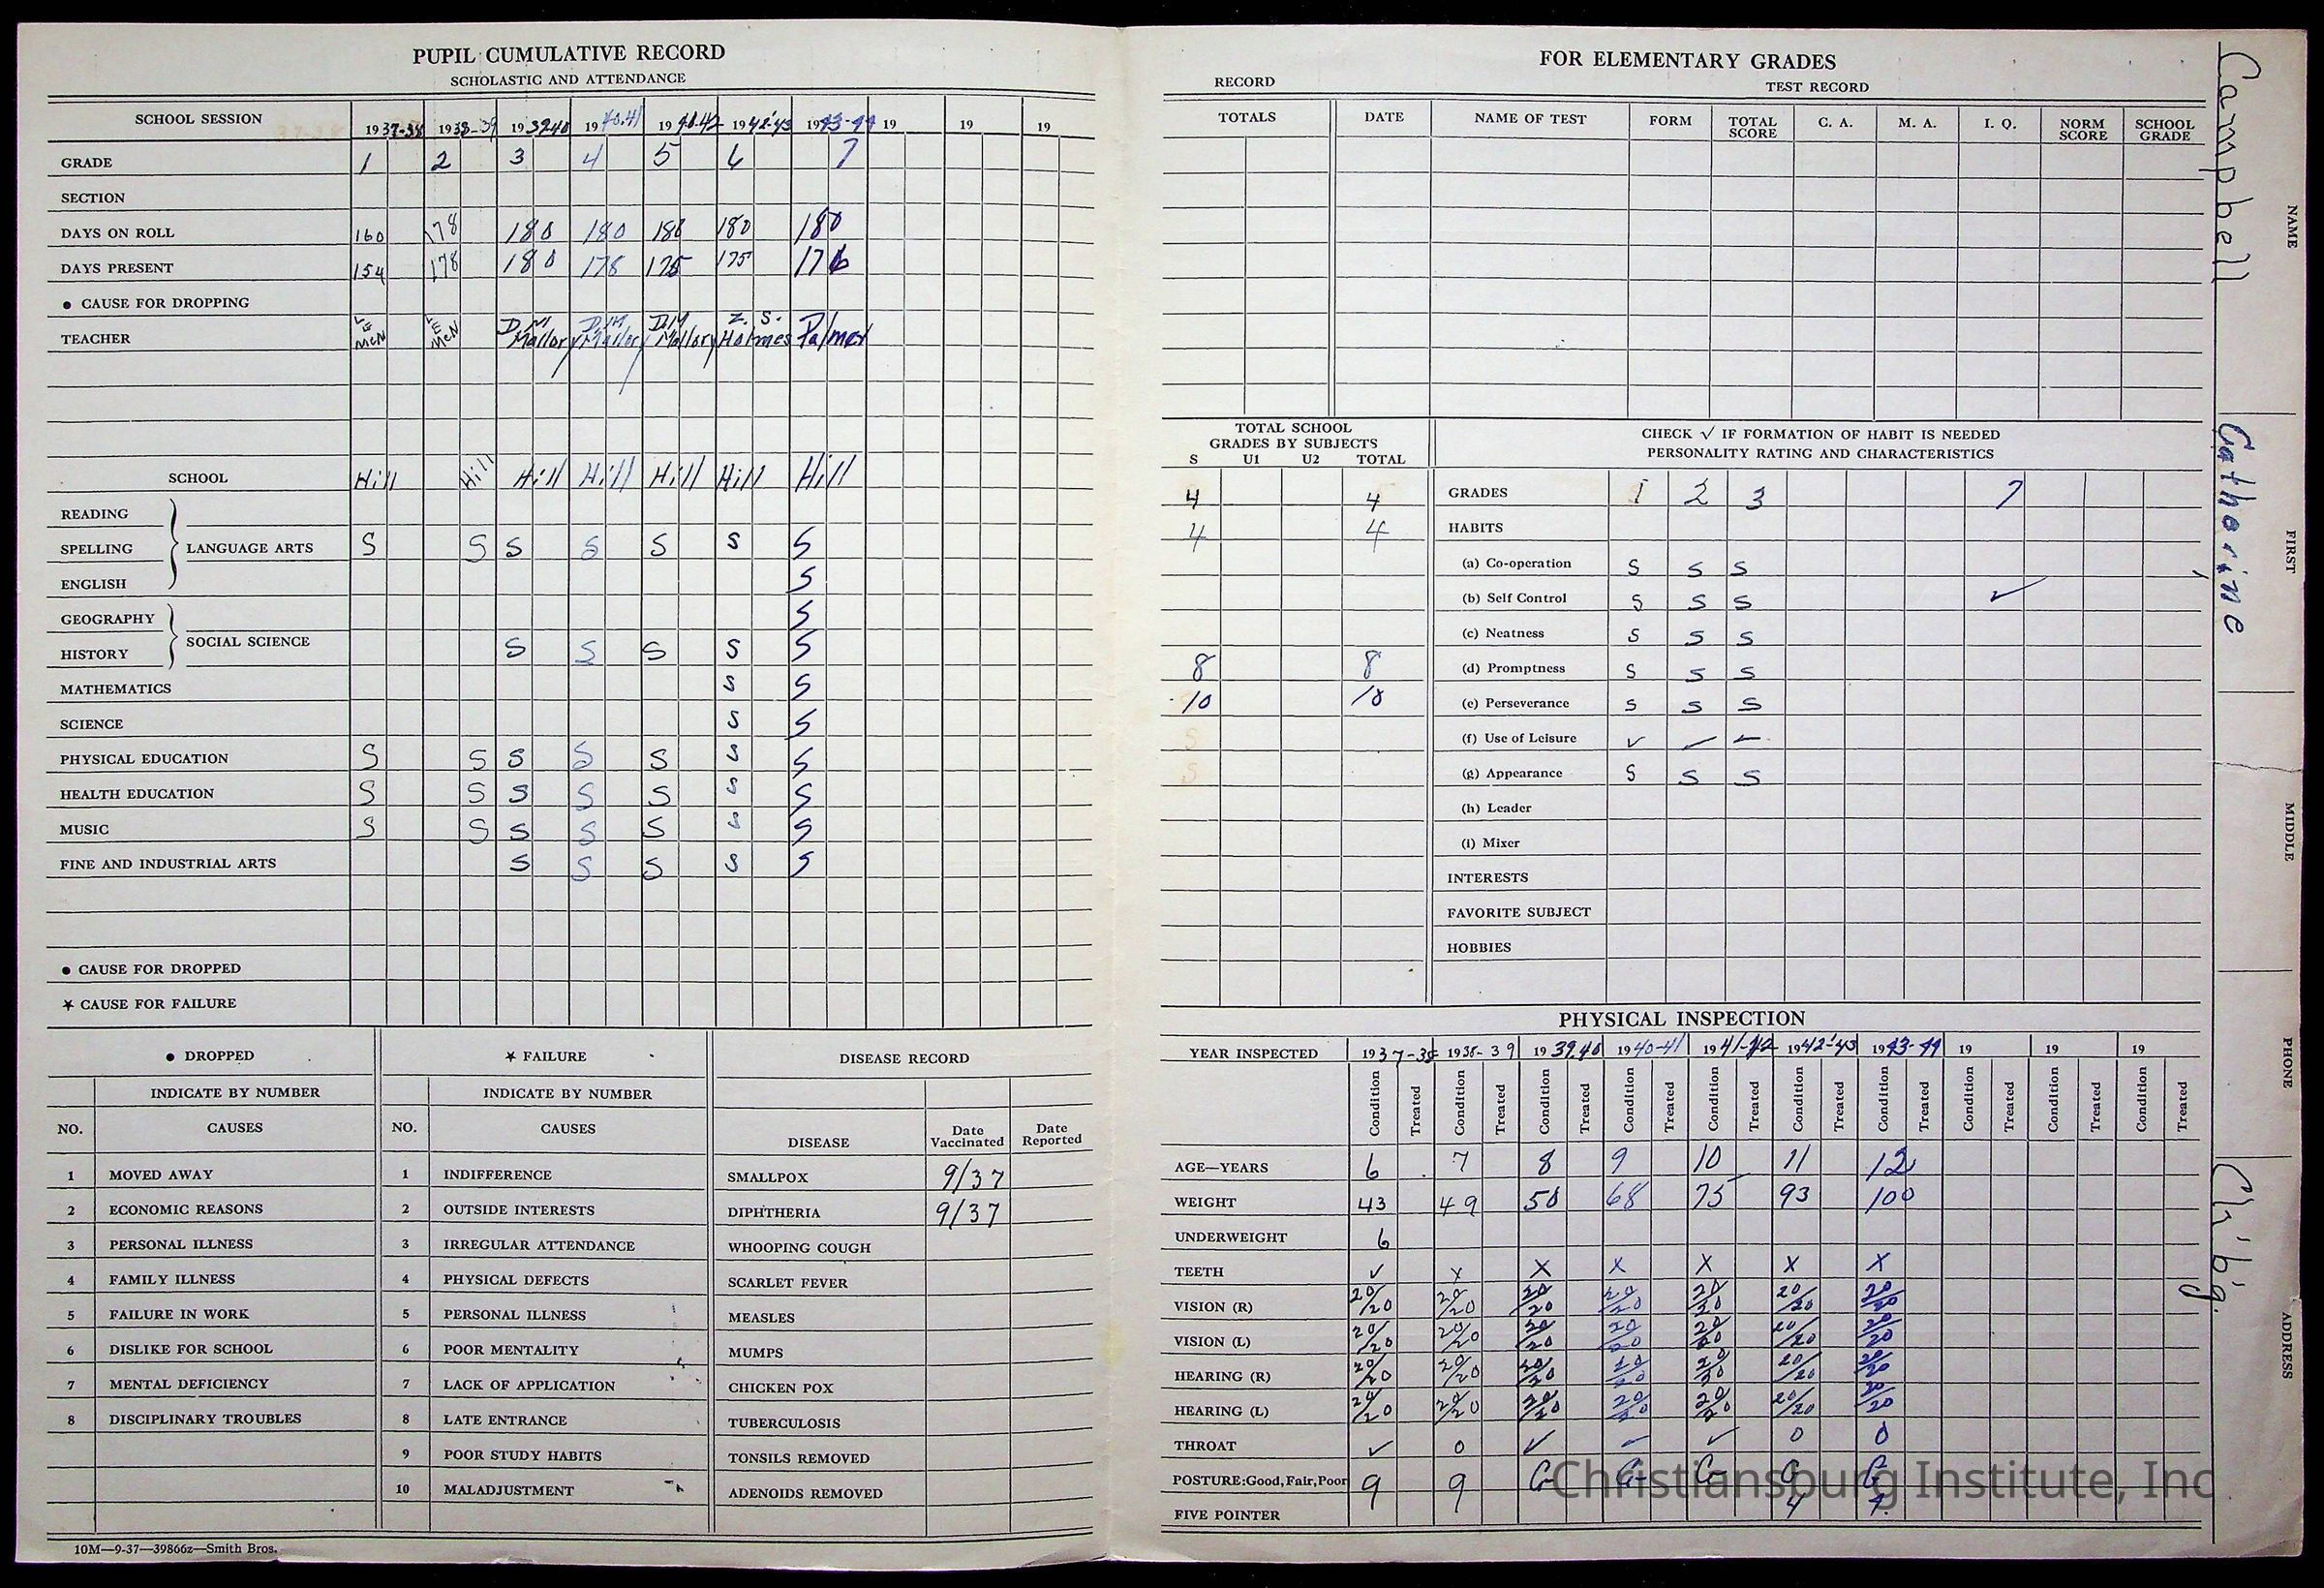 PUPIL CUMULATIVE RECORD
SCHOLASTIC AND ATTENDANCE
SCHOOL SESSION 1937-38 1938-39 1939-40 1940-41 19 41-42 1942-43 1943-44 19 19 19
GRADE 1 2 3 4 5 6 7
SECTION
DAYS ON ROLL 160 178 180 180 180 180 180
DAYS PRESENT 154 178 180 178 175 175 176
● CAUSE FOR DROPPING
TEACHER L E McN L E McN D.M Mallory D.M Mallory D.M Mallory Z. S. Holmes Palmer
SCHOOL Hill Hill Hill Hill Hill Hill Hill
READING
SPELLING LANGUAGE ARTS S S S S S S S
ENGLISH S
GEOGRAPHY S
HISTORY SOCIAL SCIENCE S S S S S
MATHEMATICS S S
SCIENCE S S
PHYSICAL EDUCATION S S S S S S S
HEALTH EDUCATION S S S S S S S
MUSIC S S S S S S S
FINE AND INDUSTRIAL ARTS S S S S S
● CAUSE FOR DROPPED
★ CAUSE FOR FAILURE
● DROPPED
INDICATE BY NUMBER
NO. CAUSES
1 MOVED AWAY
2 ECONOMIC REASONS
3 PERSONAL ILLNESS
4 FAMILY ILLNESS
5 FAILURE IN WORK
6 DISLIKE FOR SCHOOL
7 MENTAL DEFICIENCY
8 DISCIPLINARY TROUBLES
★ FAILURE
INDICATE BY NUMBER
NO. CAUSES
1 INDIFFERENCE
2 OUTSIDE INTERESTS
3 IRREGULAR ATTENDANCE
4 PHYSICAL DEFECTS
5 PERSONAL ILLNESS
6 POOR MENTALITY
7 LACK OF APPLICATION
8 LATE ENTRANCE
9 POOR STUDY HABITS
10 MALADJUSTMENT
DISEASE RECORD
DISEASE Date Vaccinated Date Reported
SMALLPOX 9/37
DIPHTHERIA 9/37
WHOOPING COUGH
SCARLET FEVER
MEASLES
MUMPS
CHICKEN POX
TUBERCULOSIS
TONSILS REMOVED
ADENOIDS REMOVED
10M—9-37—39866z—Smith Bros.
FOR ELEMENTARY GRADES
RECORD TEST RECORD
TOTALS DATE NAME OF TEST FORM TOTAL SCORE C. A. M. A. I. Q. NORM SCORE SCHOOL GRADE
TOTAL SCHOOL
GRADES BY SUBJECTS
S U1 U2 TOTAL
4 4
4 4
8 8
10 10
S
S
CHECK √ IF FORMATION OF HABIT IS NEEDED
PERSONALITY RATING AND CHARACTERISTICS
GRADES 1 2 3 7
HABITS
(a) Co-operation S S S
(b) Self Control S S S ✓
(c) Neatness S S S
(d) Promptness S S S
(e) Perseverance S S S
(f) Use of Leisure ✓ ✓ ✓
(g) Appearance S S S
(h) Leader
(i) Mixer
INTERESTS
FAVORITE SUBJECT
HOBBIES
PHYSICAL INSPECTION
YEAR INSPECTED 1937-38 1938-39 1939-40 1940-41 1941-42 1942-43 1943-44 19 19 19
Condition Treated Condition Treated Condition Treated Condition Treated Condition Treated Condition Treated Condition Treated Condition Treated Condition Treated Condition Treated
AGE—YEARS 6 7 8 9 10 11 12
WEIGHT 43 49 50 68 75 93 100
UNDERWEIGHT 6
TEETH ✓ x x x x x x
VISION (R) 20/20 20/20 20/20 20/20 20/20 20/20 20/20
VISION (L) 20/20 20/20 20/20 20/20 20/20 20/20 20/20
HEARING (R) 20/20 20/20 20/20 20/20 20/20 20/20 20/20
HEARING (L) 20/20 20/20 20/20 20/20 20/20 20/20 20/20
THROAT ✓ 0 ✓ ✓ ✓ 0 0
POSTURE: Good, Fair, Poor g g G G G G G
FIVE POINTER 4 4
Christiansburg Institute, Inc
Campbell
NAME
Catherine
FIRST
MIDDLE
PHONE
Ch'b'g.
ADDRESS